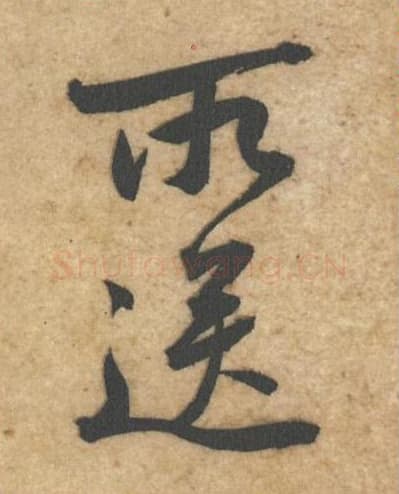 所
送
Shufawang.CN